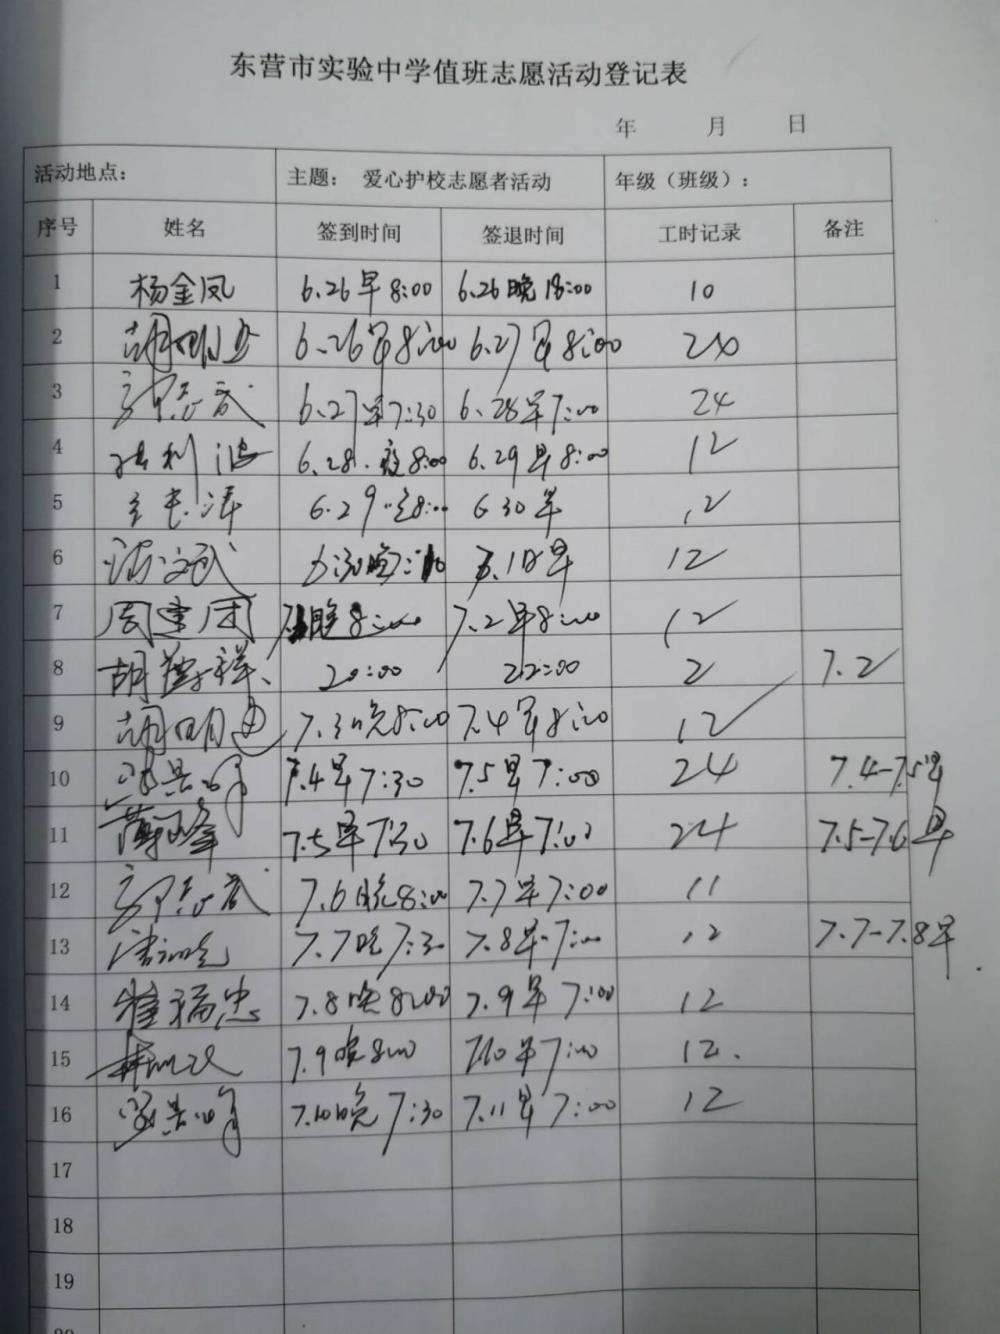 东营市实验中学值班志愿活动登记表
年 月 日
活动地点： 主题： 爱心护校志愿者活动 年级（班级）：
序号 姓名 签到时间 签退时间 工时记录 备注
1 杨金凤 6.26早8:00 6.26晚18:00 10
2 6.26早8:00 6.27早8:00 24
3 6.27早7:30 6.28早7:00 24
4 6.28.夜8:00 6.29早8:00 12
5 6.29 8:00 6.30早 12
6 7.1日早 12
7 周建团 晚8:00 7.2早8:00 12
8 胡 祥 20:00 22:00 2 7.2
9 胡明 7.3晚8:00 7.4早8:00 12
10 7.4早7:30 7.5早7:00 24 7.4-7.5早
11 7.5早7:30 7.6早7:00 24 7.5-7.6早
12 7.6晚8:00 7.7早7:00 11
13 7.7晚7:30 7.8早7:00 12 7.7-7.8早
14 福忠 7.8晚8:00 7.9早7:00 12
15 7.9晚8:00 7.10早7:00 12.
16 7.10晚7:30 7.11早7:00 12
17
18
19